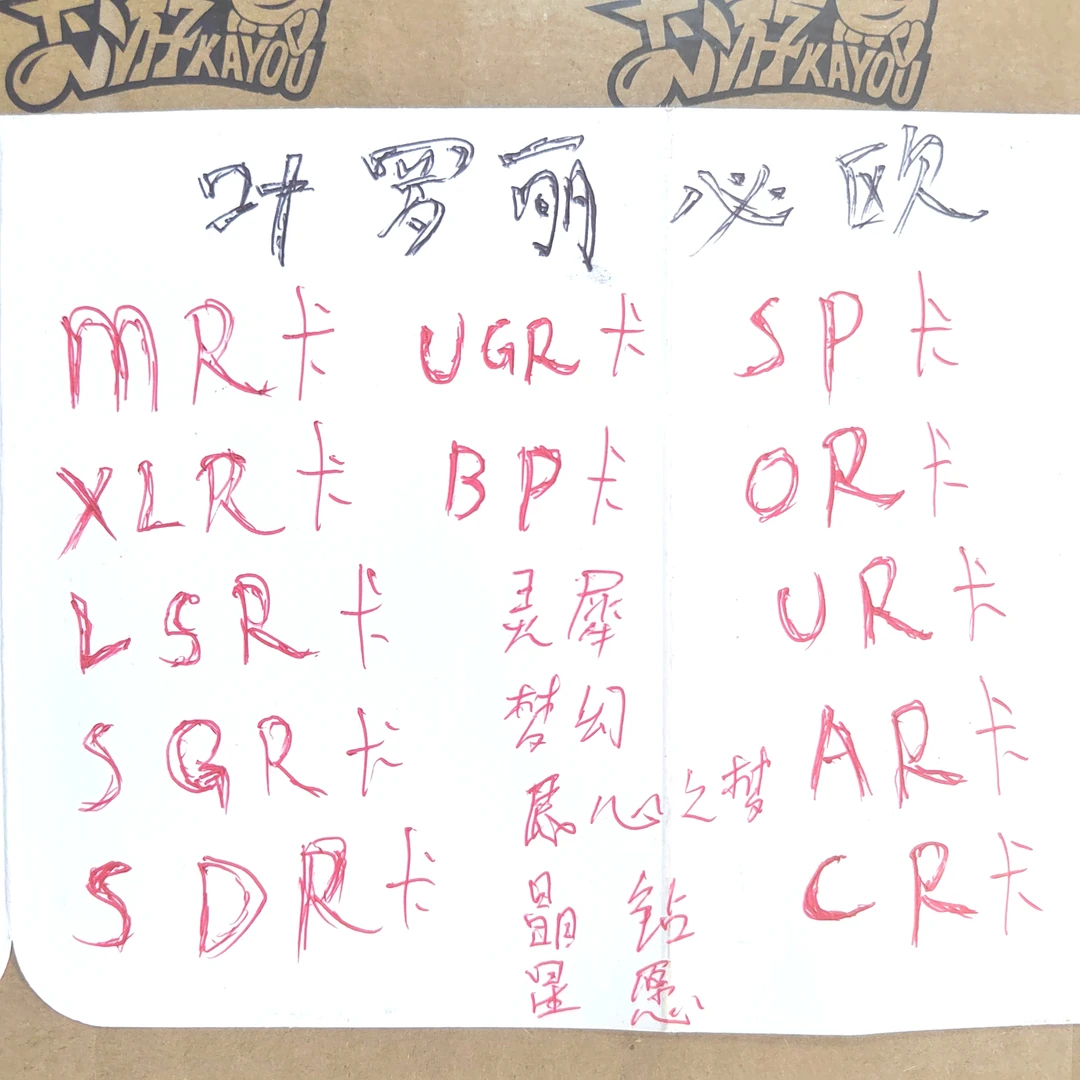 卡游 KAYOU 卡游 KAYOU
叶罗丽必欧
MR卡 UGR卡 SP卡
XLR卡 BP卡 OR卡
LSR卡 灵犀 UR卡
SGR卡 梦幻 AR卡
心之梦
SDR卡 晶钻 CR卡
星愿